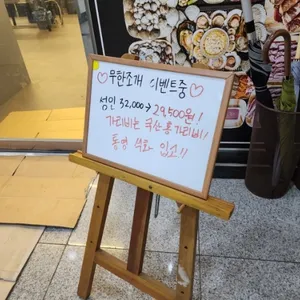 ♡무한조개 이벤트중♡
성인 32,000→29,500원!
가리비는 국산홍가리비!
통영 석화 입고!!